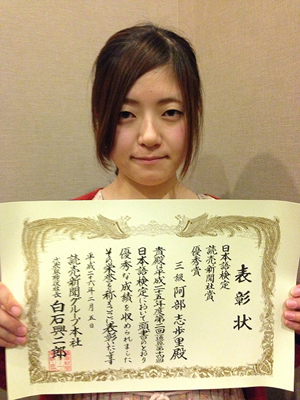 表彰状
日本語検定
読売新聞社賞
優秀賞
三級 阿部志歩里殿
貴殿は平成二十五年度第二回
日本語検定において頭書のとおり
優秀な成績を収められました
よってその栄誉を称えここに表彰いたします
平成二十六年二月五日
読売新聞グループ本社
白石興二郎